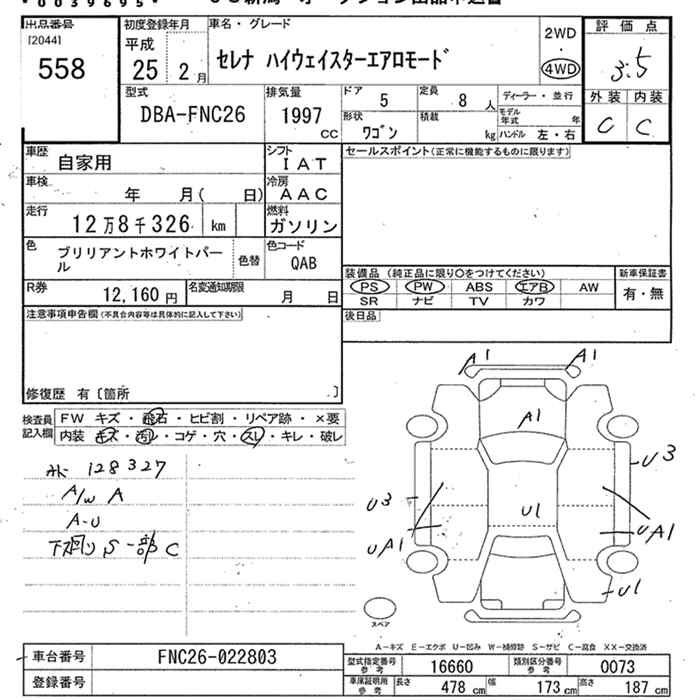 *0039695*
出品番号
[2044]
558
初度登録年月
平成
25 2 月
車名・グレード
セレナ ハイウェイスターエアロモード
2WD
・
4WD
評価点
3.5
外装 内装
C C
型式
DBA-FNC26
排気量
1997
CC
ドア
5
定員
8 人
ディーラー・並行
モデル年式 年
形状
ワゴン
積載
kg
ハンドル 左・右
車歴
自家用
シフト
IAT
セールスポイント(正常に機能するものに限ります)
車検
年 月( 日)
冷房
AAC
走行
12万8千326 km
燃料
ガソリン
色
ブリリアントホワイトパール
色替
色コード
QAB
R券
12,160 円
名変通知期限
月 日
装備品 (純正品に限り○をつけてください)
新車保証書
PS PW ABS エアB AW
有・無
SR ナビ TV カワ
注意事項申告欄(不具合内容等は具体的に記入して下さい)
後日品
修復歴 有〔箇所 〕
検査員記入欄
FW キズ・飛石・ヒビ割・リペア跡・×要
内装・キズ・汚れ・コゲ・穴・スレ・キレ・破レ
128327
A/W A
A-U
下廻り S 一部 C
A1 A1
A1
U3
U3
U1
UA1
UA1
U1
スペア
A-キズ E-エクボ U-凹み W-補修跡 S-サビ C-腐食 XX-交換済
車台番号
FNC26-022803
登録番号
型式指定番号
参考
16660
類別区分番号
参考
0073
車庫証明用
参考
長さ 478 cm 幅 173 cm 高さ 187 cm